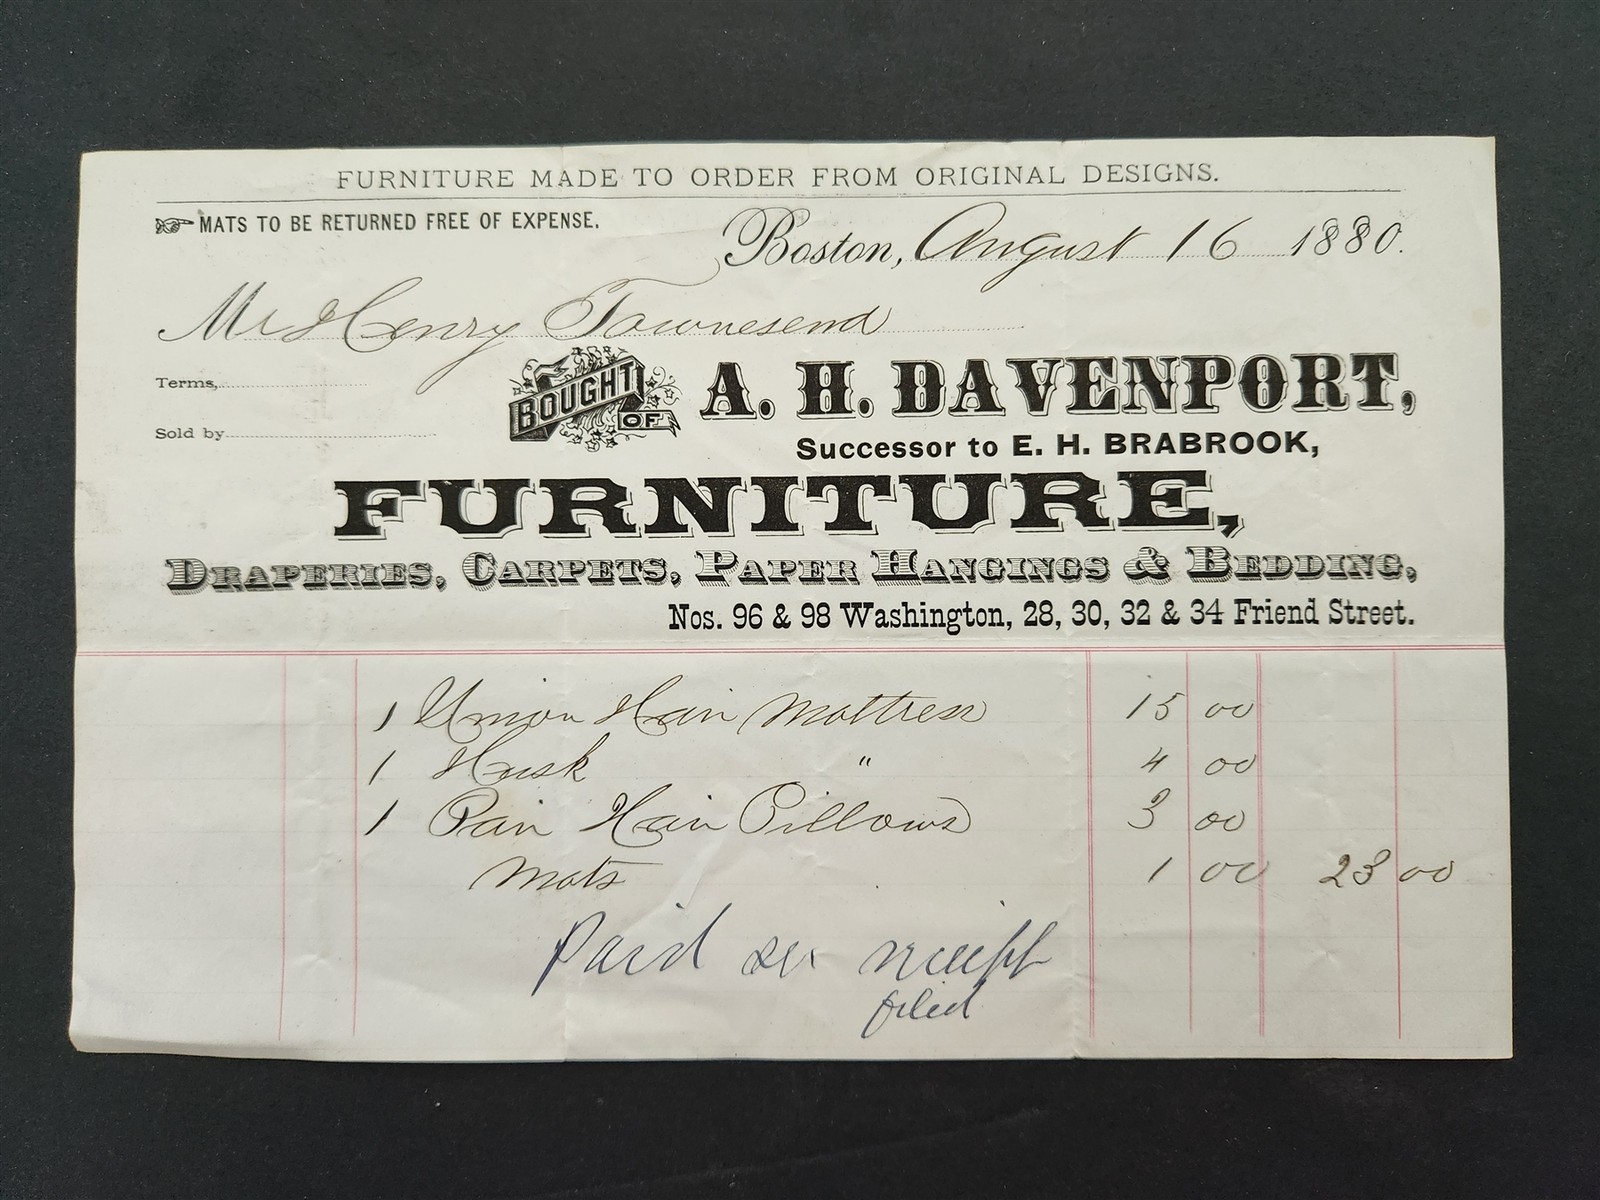 FURNITURE MADE TO ORDER FROM ORIGINAL DESIGNS.
MATS TO BE RETURNED FREE OF EXPENSE.
Boston, August 16 1880.
Mr Henry Townesend
Terms,
BOUGHT OF A. H. DAVENPORT,
Sold by
Successor to E. H. BRABROOK,
FURNITURE,
DRAPERIES, CARPETS, PAPER HANGINGS & BEDDING,
Nos. 96 & 98 Washington, 28, 30, 32 & 34 Friend Street.
1 Union Hair Mattress 15 00
1 Husk " 4 00
1 Pair Hair Pillows 3 00
Mats 1 00 23 00
Paid see receipt
filed